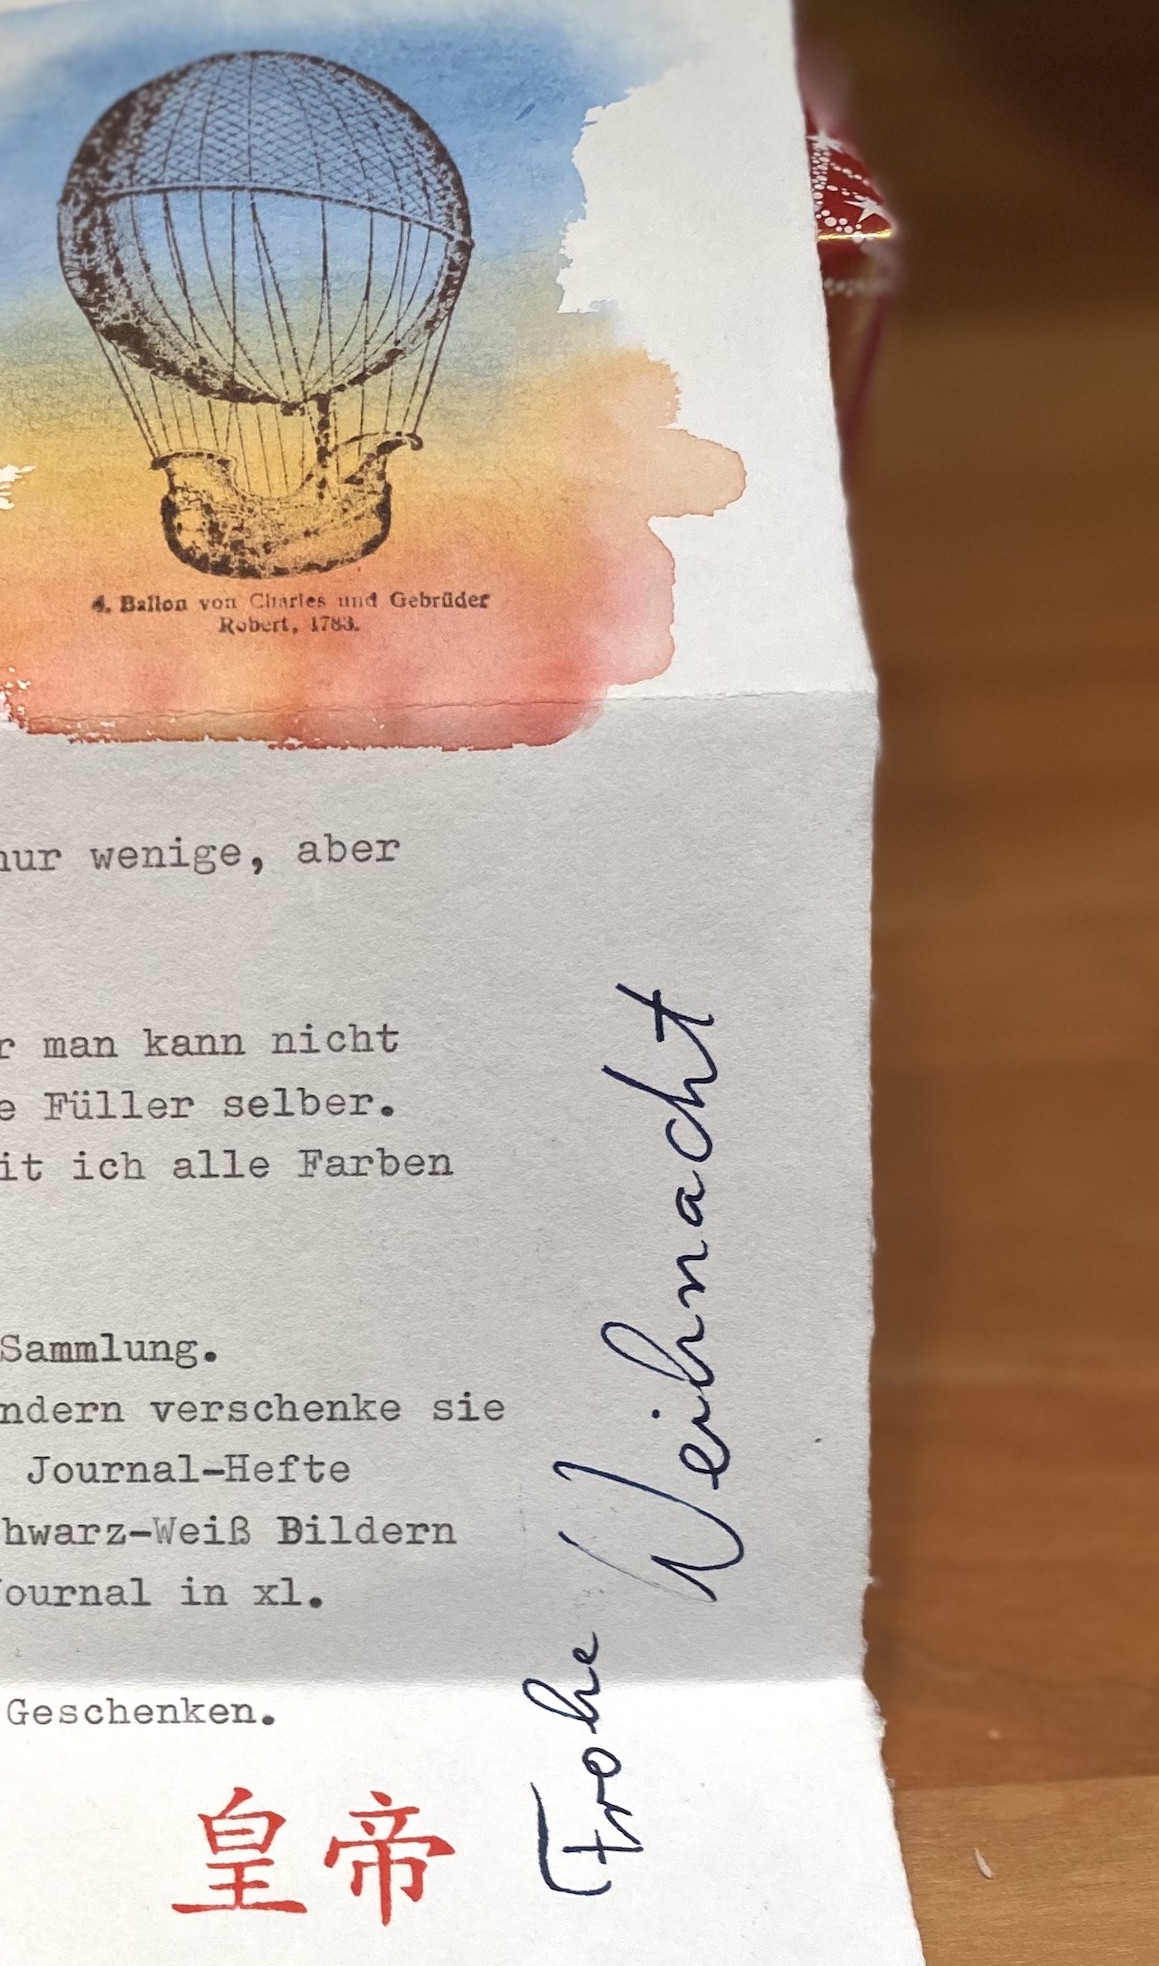 4. Ballon von Charles und Gebrüder
Robert, 1783.
nur wenige, aber
r man kann nicht
e Füller selber.
it ich alle Farben
Sammlung.
ndern verschenke sie
Journal-Hefte
hwarz-Weiß Bildern
ournal in xl.
Geschenken.
皇帝
Frohe Weihnacht